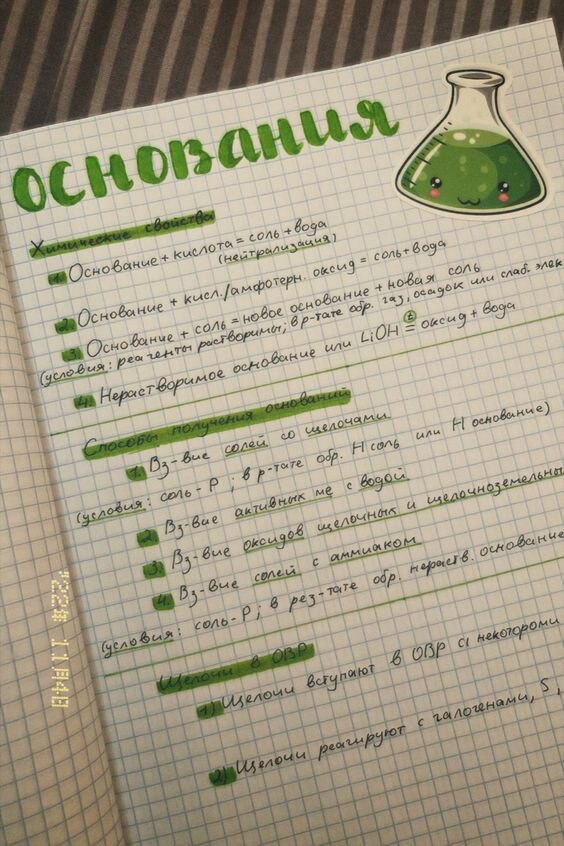 ОСНОВАНИЯ
Химические свойства
1. Основание + кислота = соль + вода
(нейтрализация)
2. Основание + кисл./амфотерн. оксид = соль + вода
3. Основание + соль = новое основание + новая соль
(условия: реагенты растворимы; в р-тате обр. газ, осадок или слаб. элек
4. Нерастворимое основание или LiOH t= оксид + вода
Способы получения оснований
1. Вз-вие солей со щелочами
(условия: соль - Р ; в р-тате обр. Н соль или Н основание)
2. Вз-вие активных ме с водой
3. Вз-вие оксидов щелочных и щелочноземельны
4. Вз-вие солей с аммиаком
(условия: соль - Р; в рез-тате обр. нераств. основание
Щелочи в ОВР
1) Щелочи вступают в ОВР с некоторыми
2) Щелочи реагируют с галогенами, S,